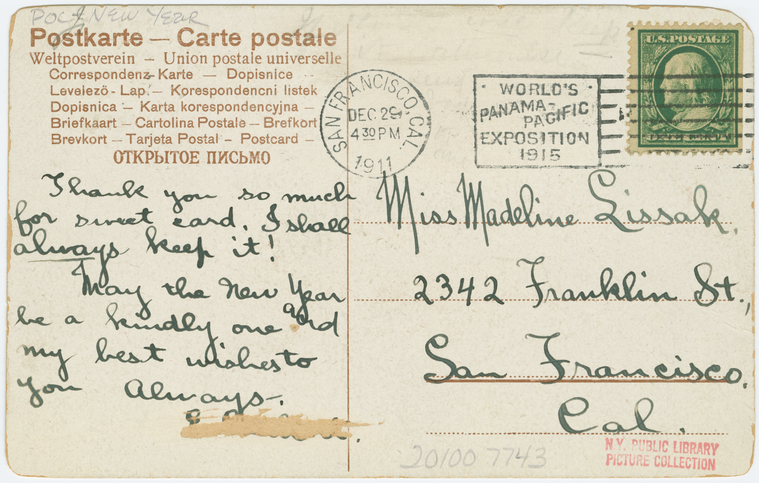 POC NEW YEAR
Postkarte — Carte postale
Weltpostverein — Union postale universelle
Correspondenz-Karte — Dopisnice
Levelező-Lap — Korespondencni listek
Dopisnica — Karta korespondencyjna —
Briefkaart — Cartolina Postale — Brefkort
Brevkort — Tarjeta Postal — Postcard —
ОТКРЫТОЕ ПИСЬМО
Thank you so much
for sweet card. I shall
always keep it!
May the New Year
be a kindly one and
my best wishes to
you Always.
SAN FRANCISCO, CAL.
DEC 29
4 30 PM
1911
WORLD'S
PANAMA-PACIFIC
EXPOSITION
1915
U.S. POSTAGE
ONE CENT
Miss Madeline Lissak,
2342 Franklin St.,
San Francisco,
Cal.
20100 7743
N.Y. PUBLIC LIBRARY
PICTURE COLLECTION